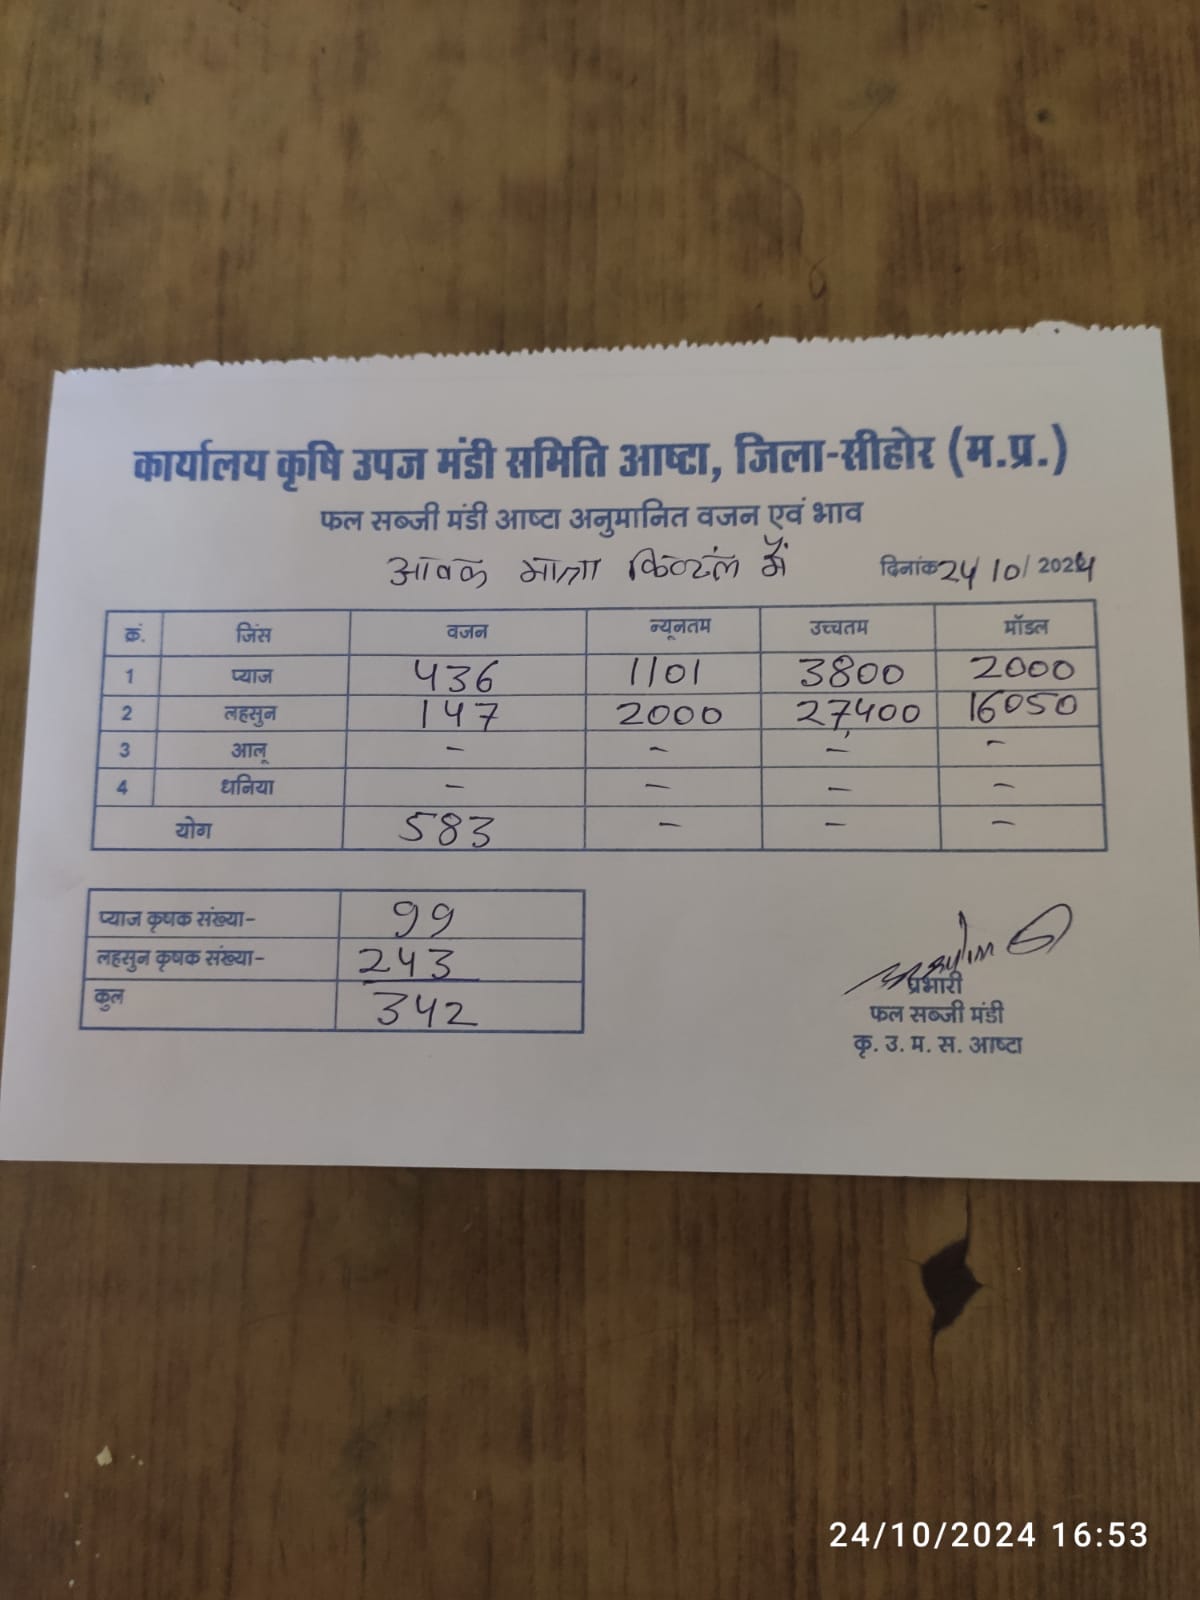 कार्यालय कृषि उपज मंडी समिति आष्टा, जिला-सीहोर (म.प्र.)
फल सब्जी मंडी आष्टा अनुमानित वजन एवं भाव
आवक मात्रा क्विंटल में दिनांक 24/10/2024
क्रं. जिंस वजन न्यूनतम उच्चतम मॉडल
1 प्याज 436 1101 3800 2000
2 लहसुन 147 2000 27,400 16050
3 आलू - - - -
4 धनिया - - - -
योग 583 - - -
प्याज कृषक संख्या- 99
लहसुन कृषक संख्या- 243
कुल 342
प्रभारी
फल सब्जी मंडी
कृ. उ. म. स. आष्टा
24/10/2024 16:53